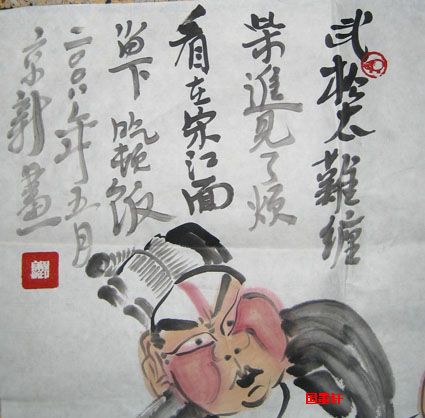 武松太難缠
柴進見了煩
看在宋江面
留下吃頓飯
二〇〇八年五月
京新畫
国画轩